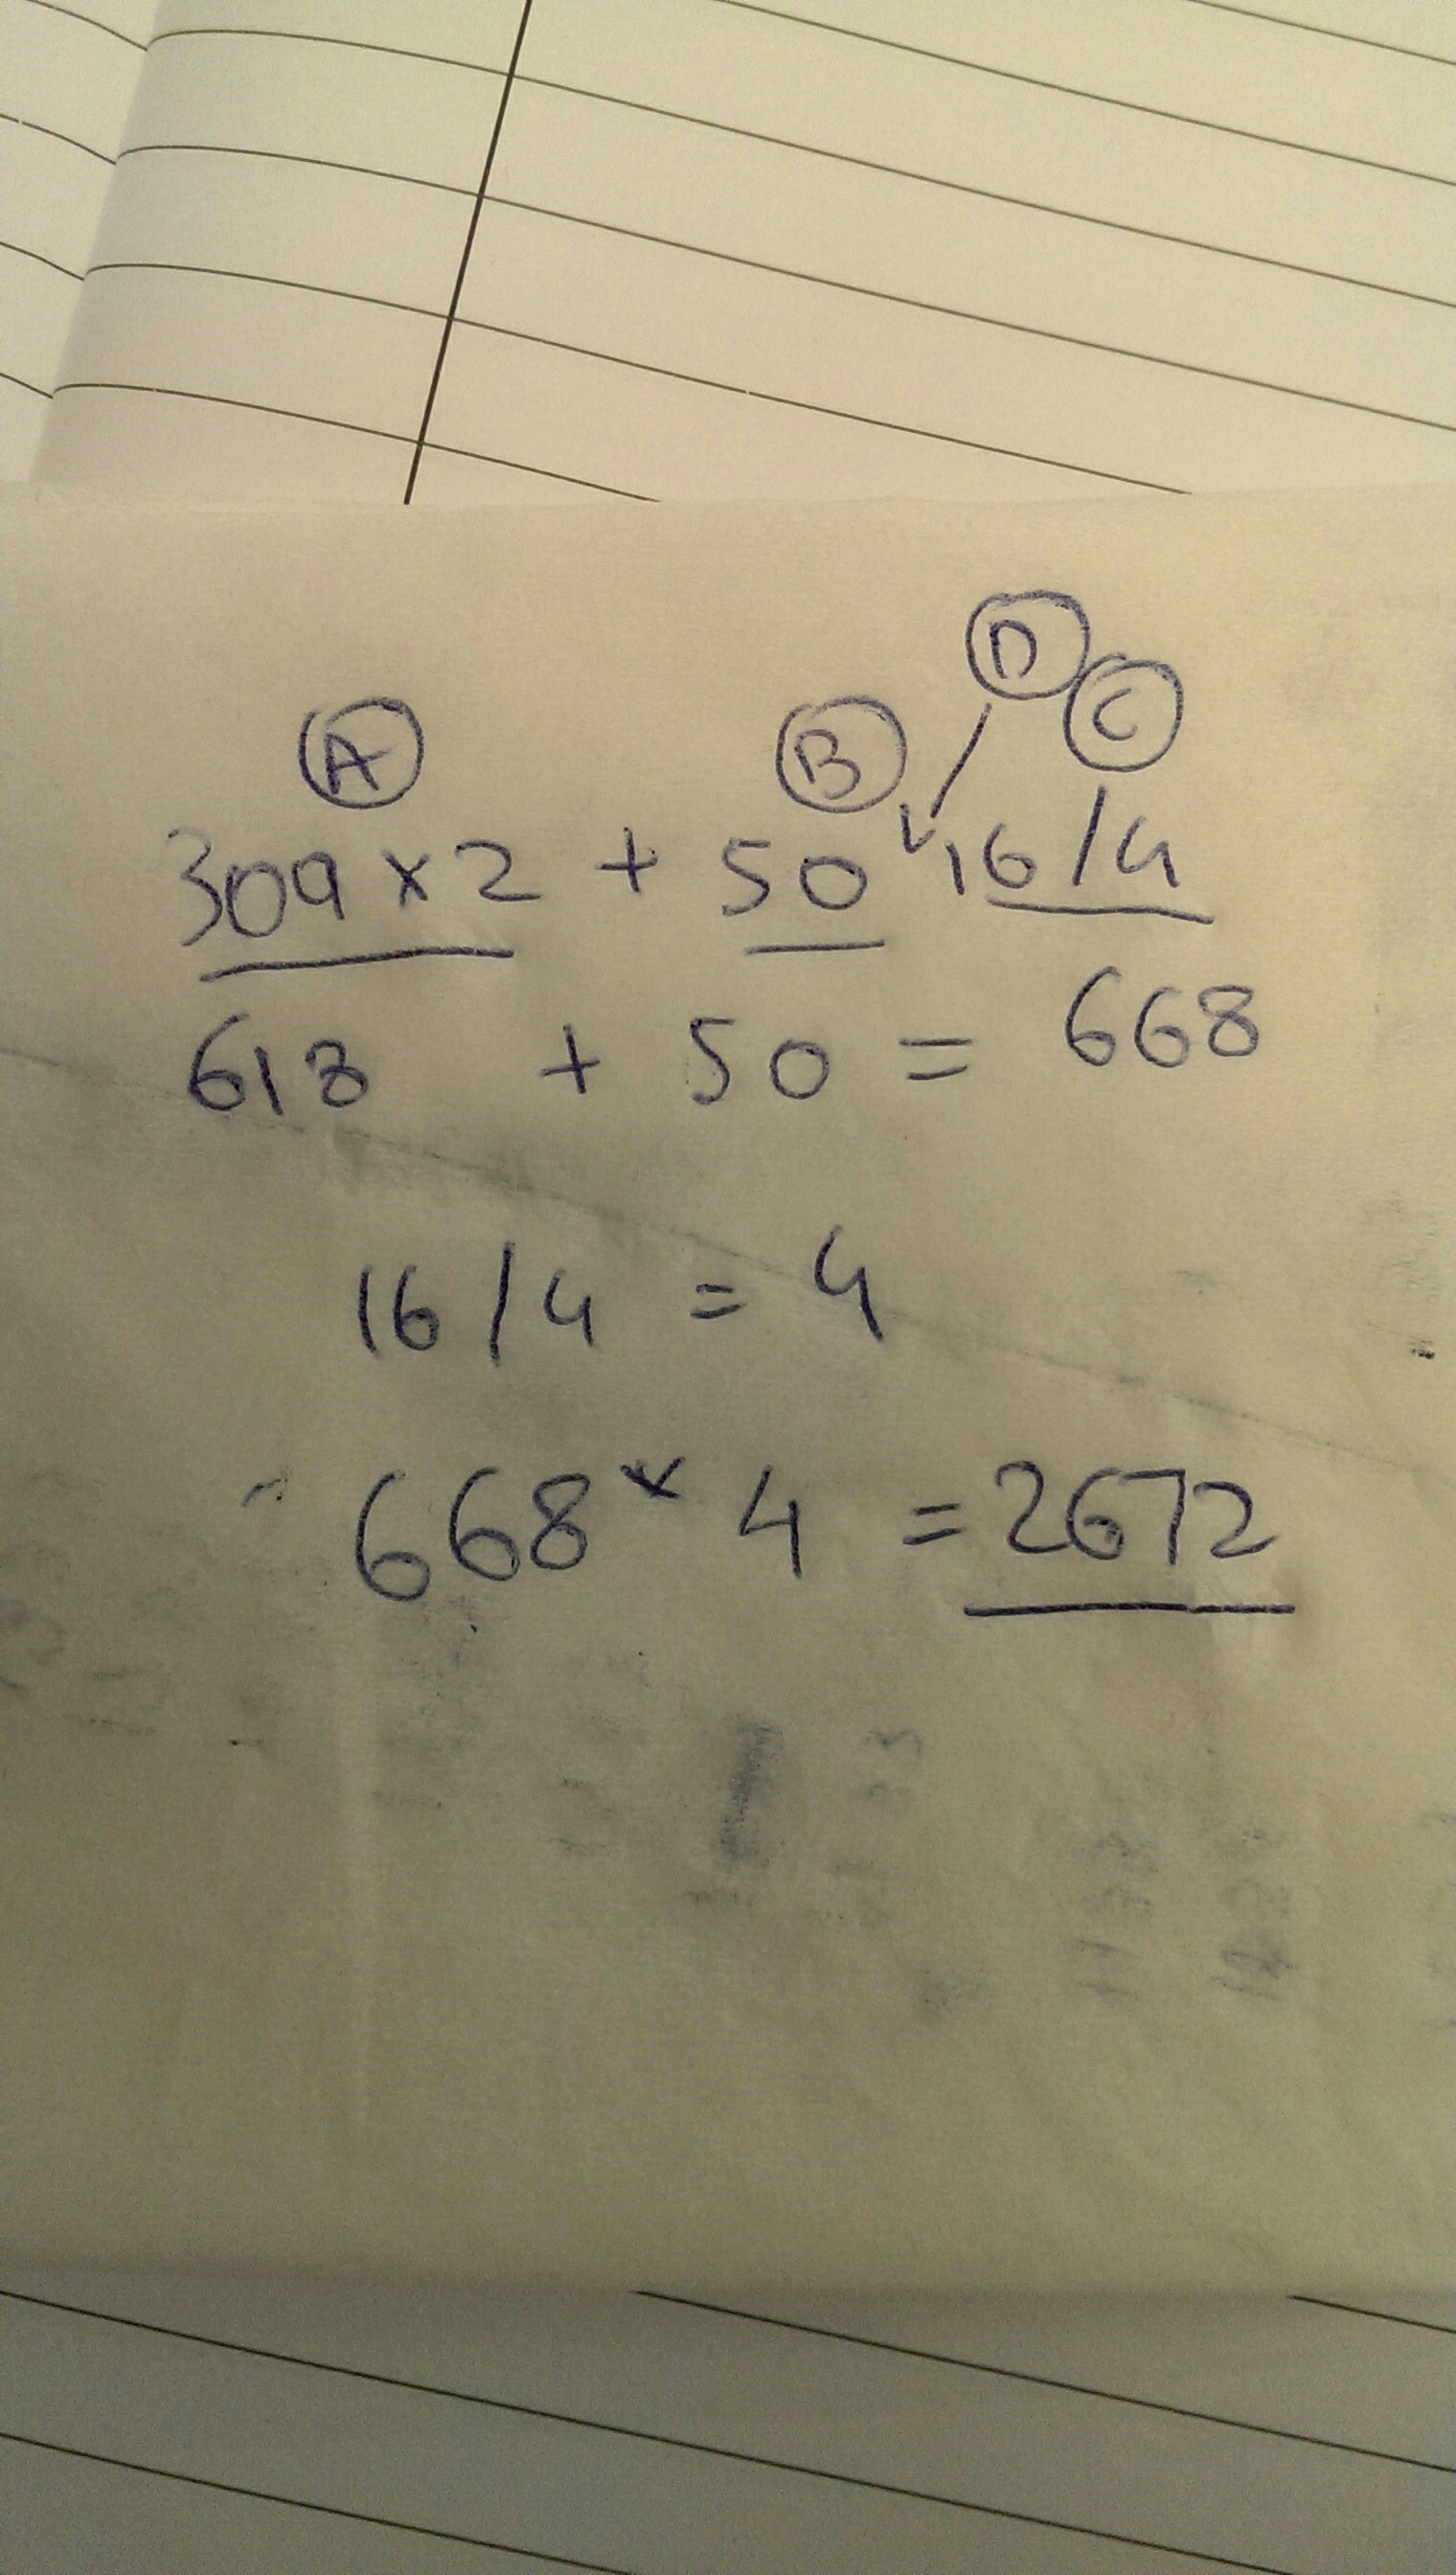 D
C
A B
309 x 2 + 50 x 16 / 4
618 + 50 = 668
16 / 4 = 4
668 x 4 = 2672